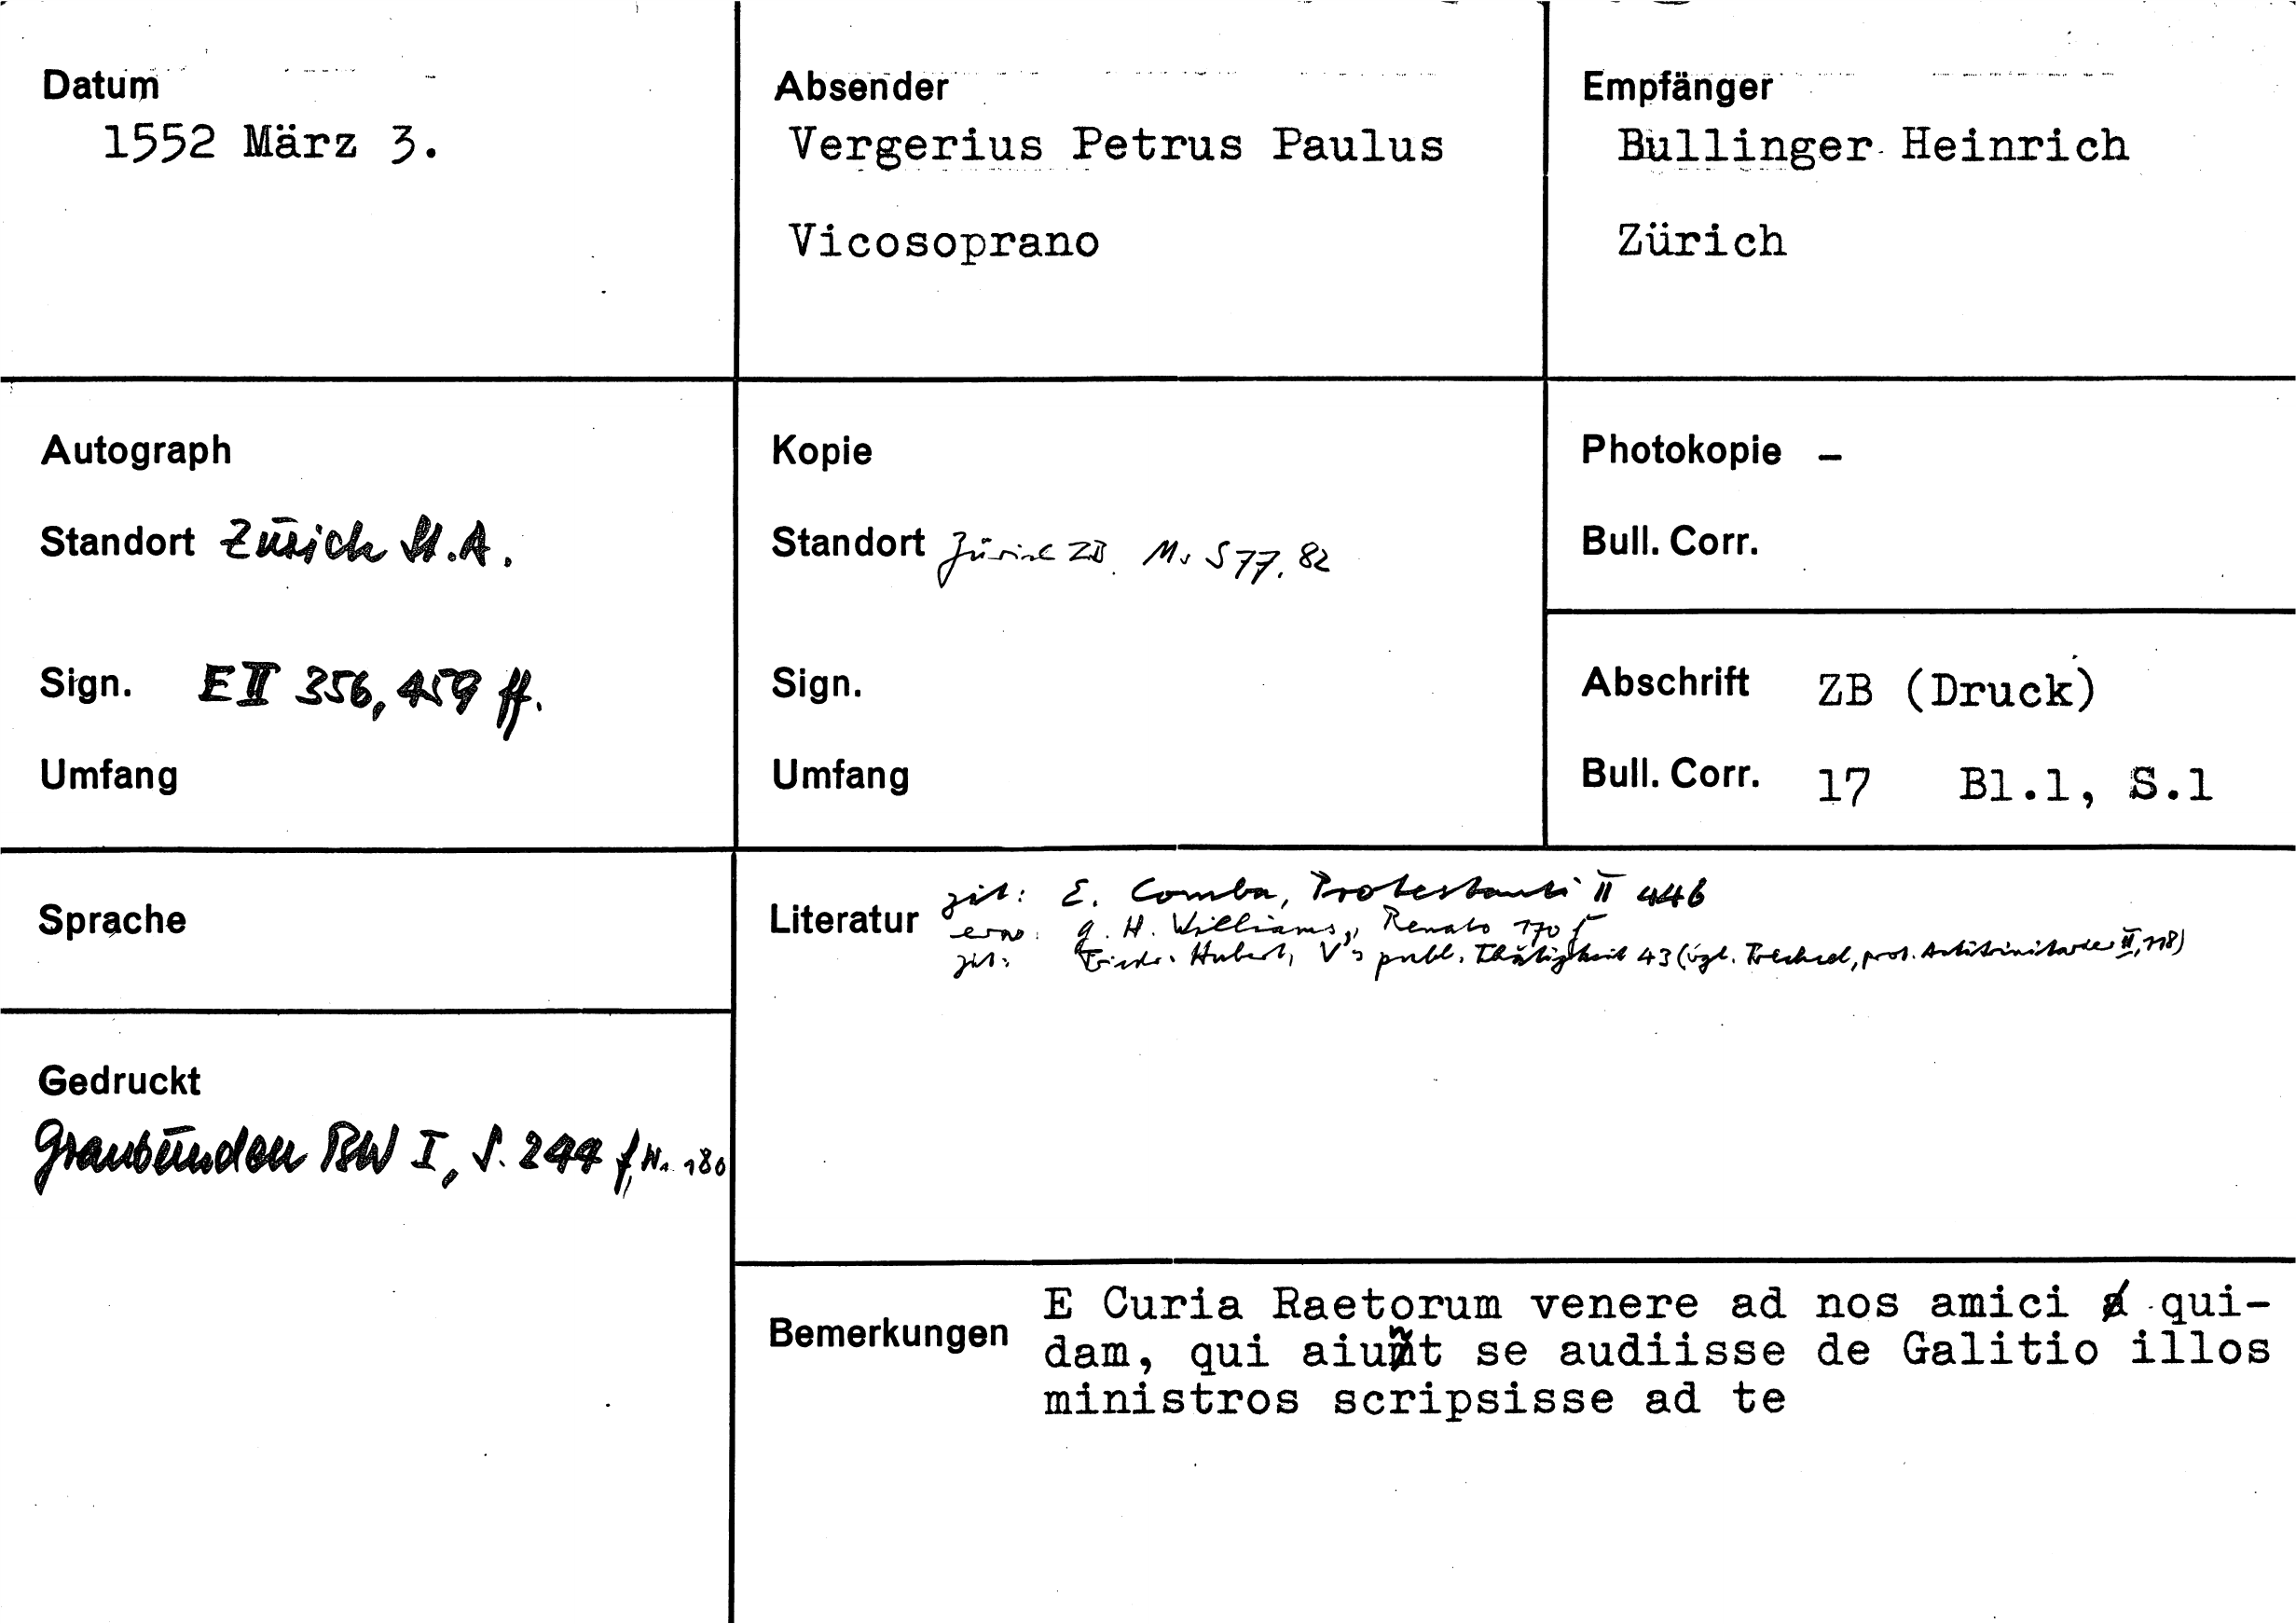 Datum
1552 März 3.
Absender
Vergerius Petrus Paulus
Vicosoprano
Empfänger
Bullinger Heinrich
Zürich
Autograph
Standort Zürich St.A.
Sign. E II 356, 459 ff.
Umfang
Kopie
Standort Zürich ZB. Ms S 77, 82
Sign.
Umfang
Photokopie –
Bull. Corr.
Abschrift ZB (Druck)
Bull. Corr. 17 Bl.1, S.1
Sprache
Gedruckt
Graubünden BW I, S. 244 f, Nr. 180
Literatur zit: E. Comba, Protestanti II 446
erw: G. H. Williams, Renato 170 f
zit: Friedr. Hubert, V's publ. Thätigkeit 43 (vgl. Trechsel, prot. Antitrinitarier II, 118)
Bemerkungen
E Curia Raetorum venere ad nos amici qui-
dam, qui aiunt se audiisse de Galitio illos
ministros scripsisse ad te